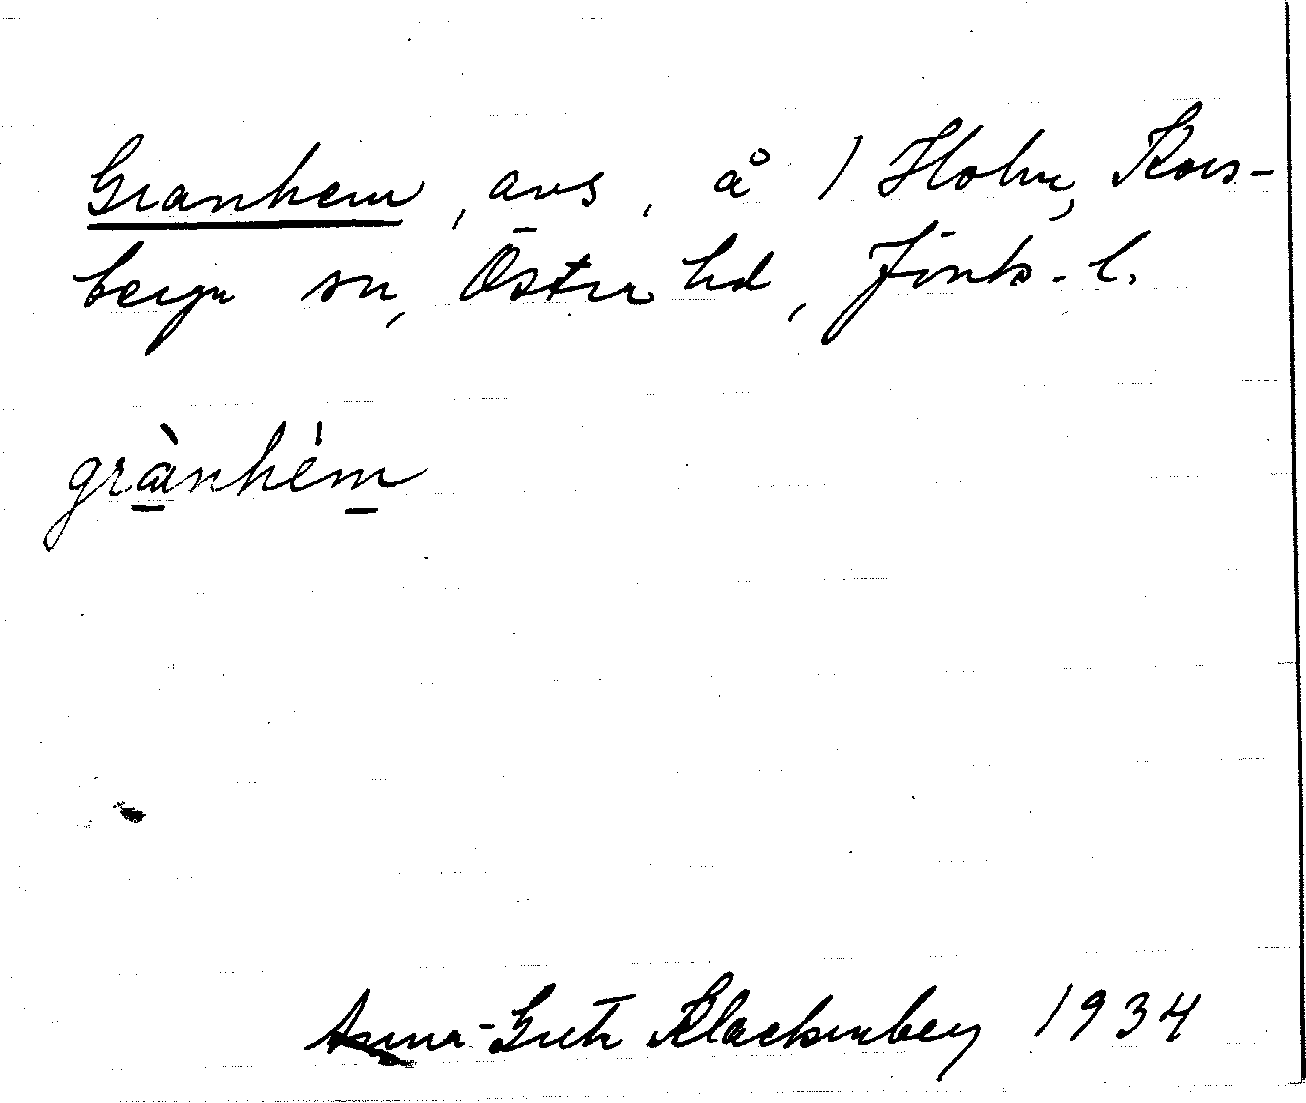 Granhem, avs, å 1 Holm, Kors-
berga sn, Östra hd, Jönk.-l.
grànhém
Anna-Greta Klackenberg 1934